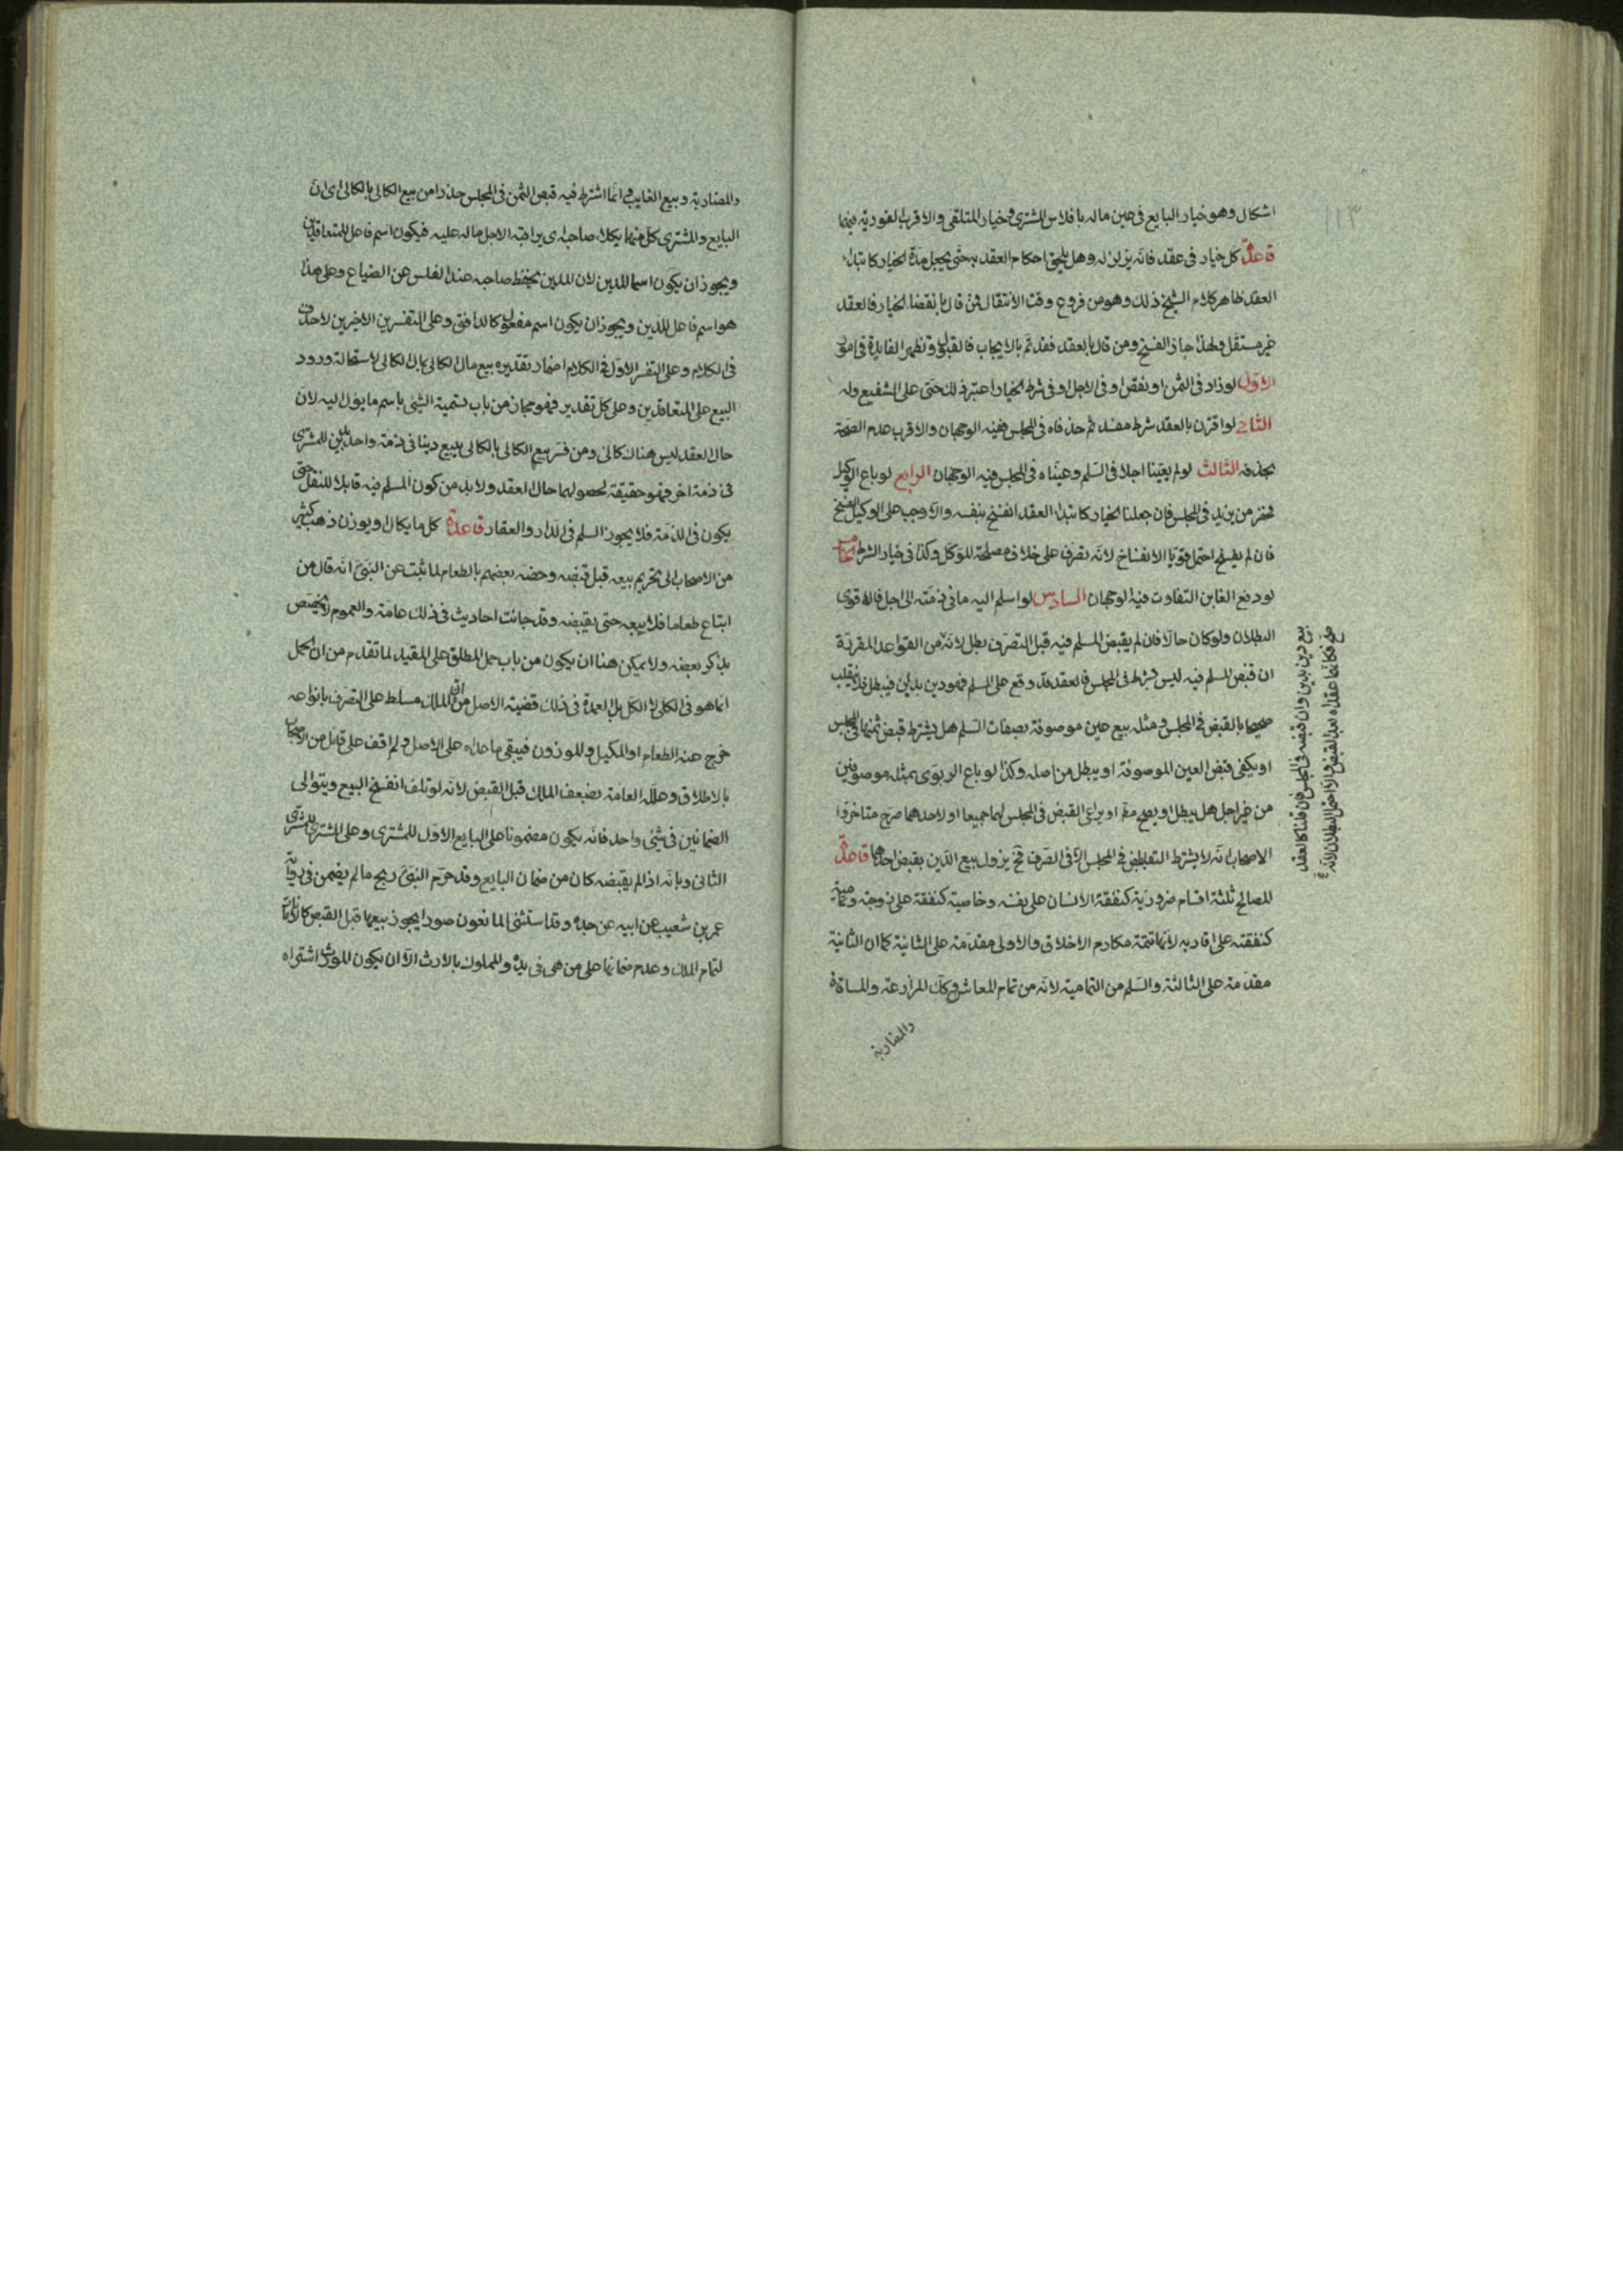 اشكال وهو خيار البايع فى عين ماله بافلاس المشترى وخيار المتلقى والاقرب الفورية فيهما
قاعدة كل خيار فى عقد فانه يزلزله وهل يلحق احكام العقد به حتى يجعل مدة الخيار كابتداء
العقد ظاهر كلام الشيخ ذلك وهو من فروع وقت الانتقال فمن قال بانقضاء الخيار فالعقد
غير مستقل ولهذا جاز الفسخ ومن قال بالعقد فقد تم بالايجاب والقبول وتظهر الفايدة فى امور
الاول لو زاد فى الثمن او نقص او فى الاجل او فى شرط الخيار اعتبر ذلك حتى على الشفيع وله
الثانى لو اقترن بالعقد شرط مفسد ثم حذفاه فى المجلس ففيه الوجهان والاقرب عدم الصحة
بحذفه الثالث لو لم يعينا اجلا فى السلم وعيناه فى المجلس فيه الوجهان الرابع لو باع الوكيل
فحضر من يزيد فى المجلس فان جعلنا الخيار كابتداء العقد انفسخ بنفسه والا وجب على الوكيل الفسخ
فان لم يفسخ احتمل قويا الانفساخ لانه تصرف على خلاف مصلحة الموكل وكذا فى خيار الشرط الخامس
لو دفع الغابن التفاوت فيه الوجهان السادس لو اسلم اليه ما فى ذمته الى اجل فالاقوى
البطلان ولو كان حالا فان لم يقبض المسلم فيه قبل التصرف بطل لانه من القواعد المقررة
ان قبض المسلم فيه ليس بشرط فى المجلس فالعقد قد وقع على المسلم فهو دين بدين فيبطل فلا ينقلب
صحيحا بالقبض فى المجلس ومثله بيع عين موصوفة بصفات السلم هل يشترط قبض ثمنها فى المجلس
او يكفى قبض العين الموصوفة او يبطل من اصله وكذا لو باع الربوى بمثله موصوفين
من غير اجل هل يبطل او يصح مط او يراعى القبض فى المجلس لهما جميعا او لاحدهما صرح متاخروا
الاصحاب انه لا يشترط التقابض فى المجلس الا فى الصرف فح يزول بيع الدين بقبض احدهما قاعدة
المصالح ثلثة اقسام ضرورية كنفقة الانسان على نفسه وحاجية كنفقة على زوجته وتمامية
كنفقته على اقاربه لانها تتمة مكارم الاخلاق والاولى مقدمة على الثانية كما ان الثانية
مقدمة على الثالثة والسلم من التمامية لانه من تمام المعاش وكك المزارعة والمساقاة
والمضاربة
بيع دين بدين وان قبضه فى المجلس فان قلنا كالعقد
صح فكانما عقداه بعد القبض والا احتمل البطلان لانه
والمضاربة وبيع الغايب وانما اشترط فيه قبض الثمن فى المجلس حذرا من بيع الكالى بالكالى اى ان
البايع والمشترى كل منهما يكلا صاحبه اى يراقبه لاجل ماله عليه فيكون اسم فاعل للمتعاقدين
ويجوز ان يكون اسما للدين لان الدين يحفظ صاحبه عند الفلس عن الضياع وعلى هذا
هو اسم فاعل للدين ويجوز ان يكون اسم مفعول كالدافق وعلى التفسرين الاخيرين لا حذف
فى الكلام وعلى التفسر الاول فى الكلام اضمار تقديره بيع مال الكالى بمال الكالى لاستحالة ورود
البيع على المتعاقدين وعلى كل تقدير فهو مجاز من باب تسمية الشئ باسم ما يؤل اليه لان
حال العقد ليس هناك كالئ ومن فسر بيع الكالى بالكالى ببيع دينا فى ذمة واحد بدين للمشترى
فى ذمة اخر فهو حقيقة لحصولهما حال العقد ولا بد من كون المسلم فيه قابلا للنقل حتى
يكون فى الذمة فلا يجوز السلم فى الدار والعقار قاعدة كل ما يكال او يوزن ذهب كثير
من الاصحاب الى تحريم بيعه قبل قبضه وخصه بعضهم بالطعام لما ثبت عن النبى انه قال من
ابتاع طعاما فلا يبيعه حتى يقبضه وقد جائت احاديث فى ذلك عامة والعموم لا يخصص
بذكر بعضه ولا يمكن هنا ان يكون من باب حمل المطلق على المقيد لما تقدم من ان الحمل
انما هو فى الكلى لا الكل بل العمدة فى ذلك قضية الاصل من ان الملك مسلط على التصرف بانواعه
خرج عنه الطعام او المكيل والموزون فيبقى ما عداه على الاصل ولم اقف على قائل من الاصحاب
بالاطلاق وعلله العامة بضعف الملك قبل القبض لانه لو تلف انفسخ البيع ويتوالى
الضمانين فى شئ واحد فانه يكون مضمونا على البايع الاول للمشترى وعلى المشترى للمشترى
الثانى وبانه اذا لم يقبضه كان من ضمان البايع وقد حرم النبى ربح ما لم يضمن فى رواية
عمر بن شعيب عن ابيه عن جده وقد استثنى المانعون صورا يجوز بيعها قبل القبض كالامانات
لتمام الملك وعدم ضمانها على من هى فى يده والمملوك بالارث الا ان يكون المورث اشتراه